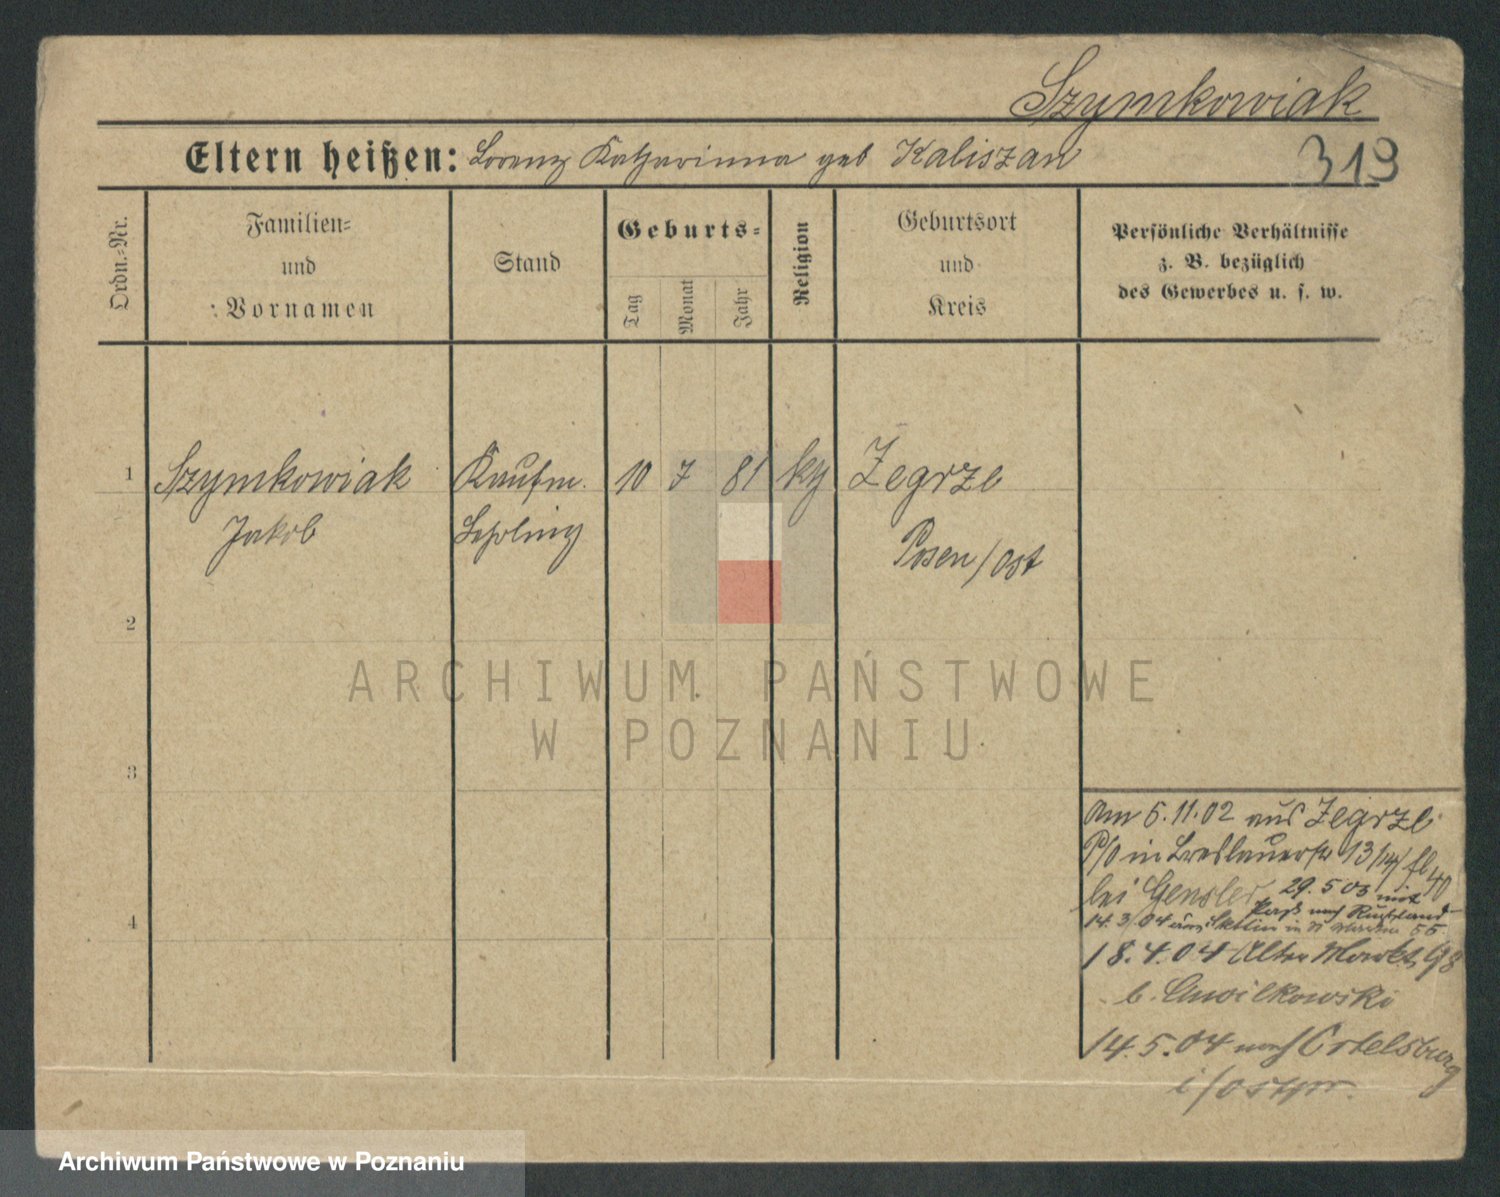 Szymkowiak
Eltern heißen: Lorenz Katharinna geb Kaliszan
319
Ordn.-Nr.
Familien-
und
Vornamen
Stand
Geburts-
Tag
Monat
Jahr
Religion
Geburtsort
und
Kreis
Persönliche Verhältnisse
z. B. bezüglich
des Gewerbes u. s. w.
1 Szymkowiak Kaufm. 10 7 81 kg Zegrze
Jakob Lehrling Posen/Ost
2
3
4
Am 5.11.02 aus Zegrze
P/O in Breslauerstr 13/14
bei Gensler 29.5 03 mit
Paß nach Russland
14.3/04 aus in 55
18.4.04 Alter Markt 98
b. Cwilkowski
14.5.04 nach Ortelsburg
i/Ostpr.
ARCHIWUM PAŃSTWOWE
W POZNANIU
Archiwum Państwowe w Poznaniu